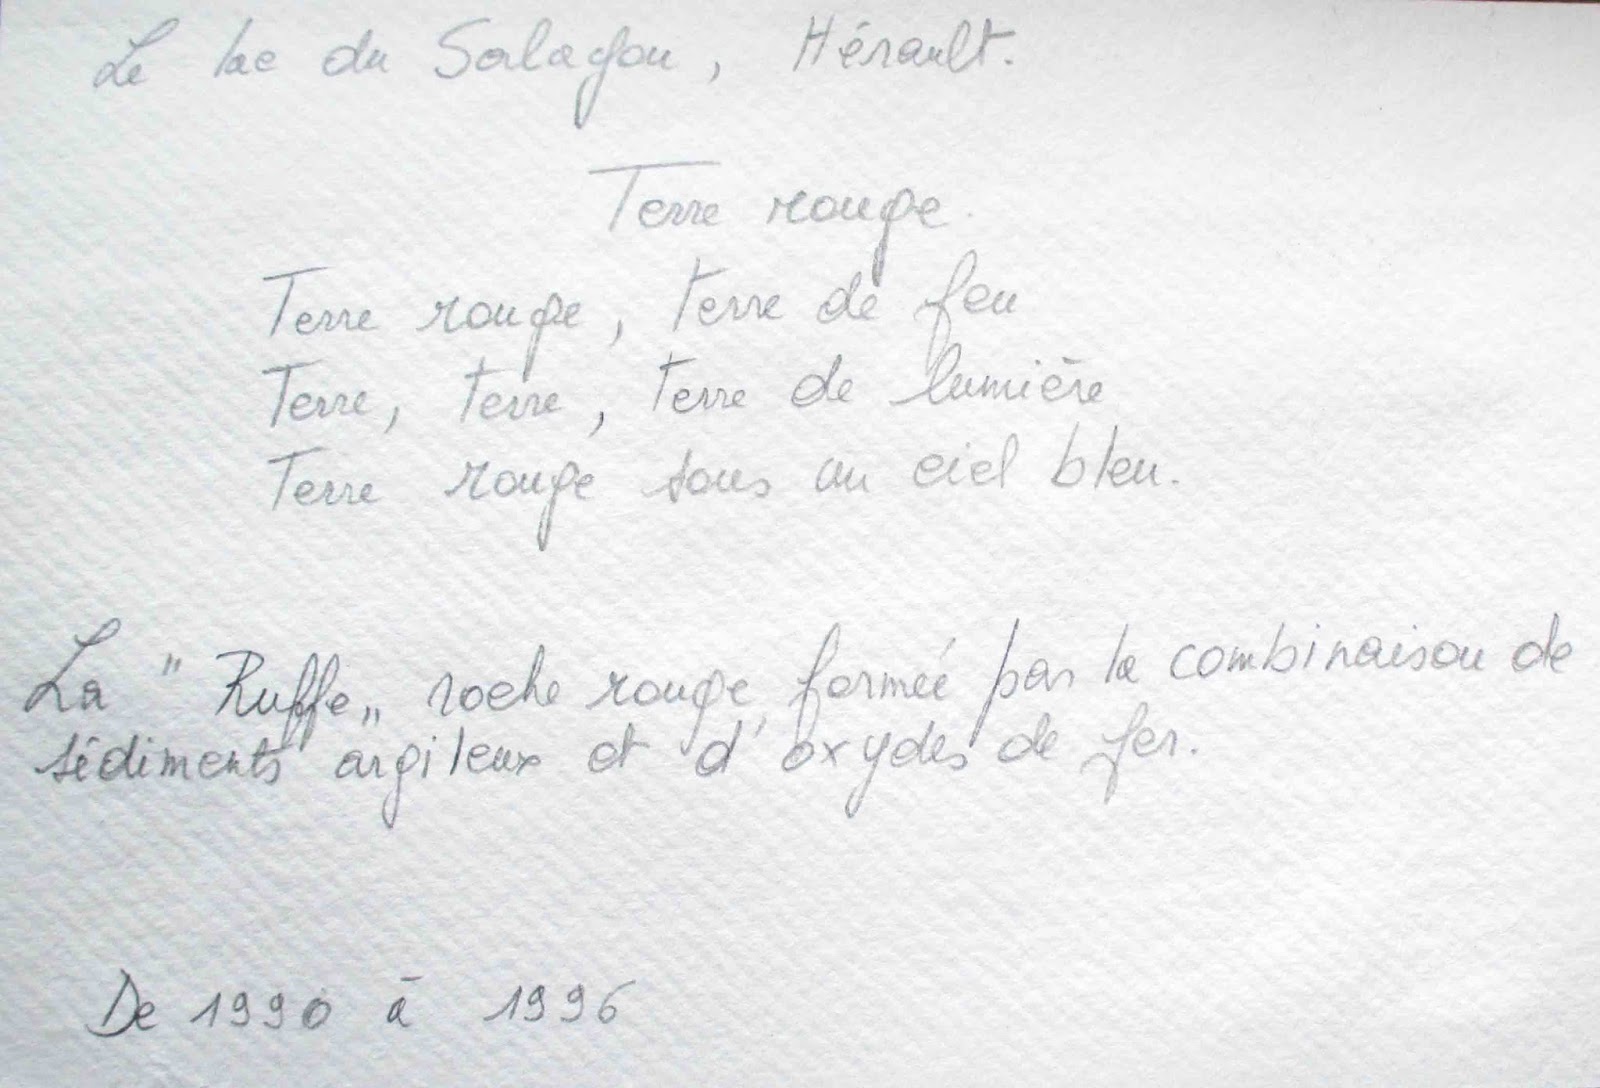 Le lac du Salagou, Hérault.
Terre rouge.
Terre rouge, terre de feu
Terre, terre, terre de lumière
Terre rouge sous un ciel bleu.
La "Ruffe„ roche rouge, formée par la combinaison de
sédiments argileux et d'oxydes de fer.
De 1990 à 1996